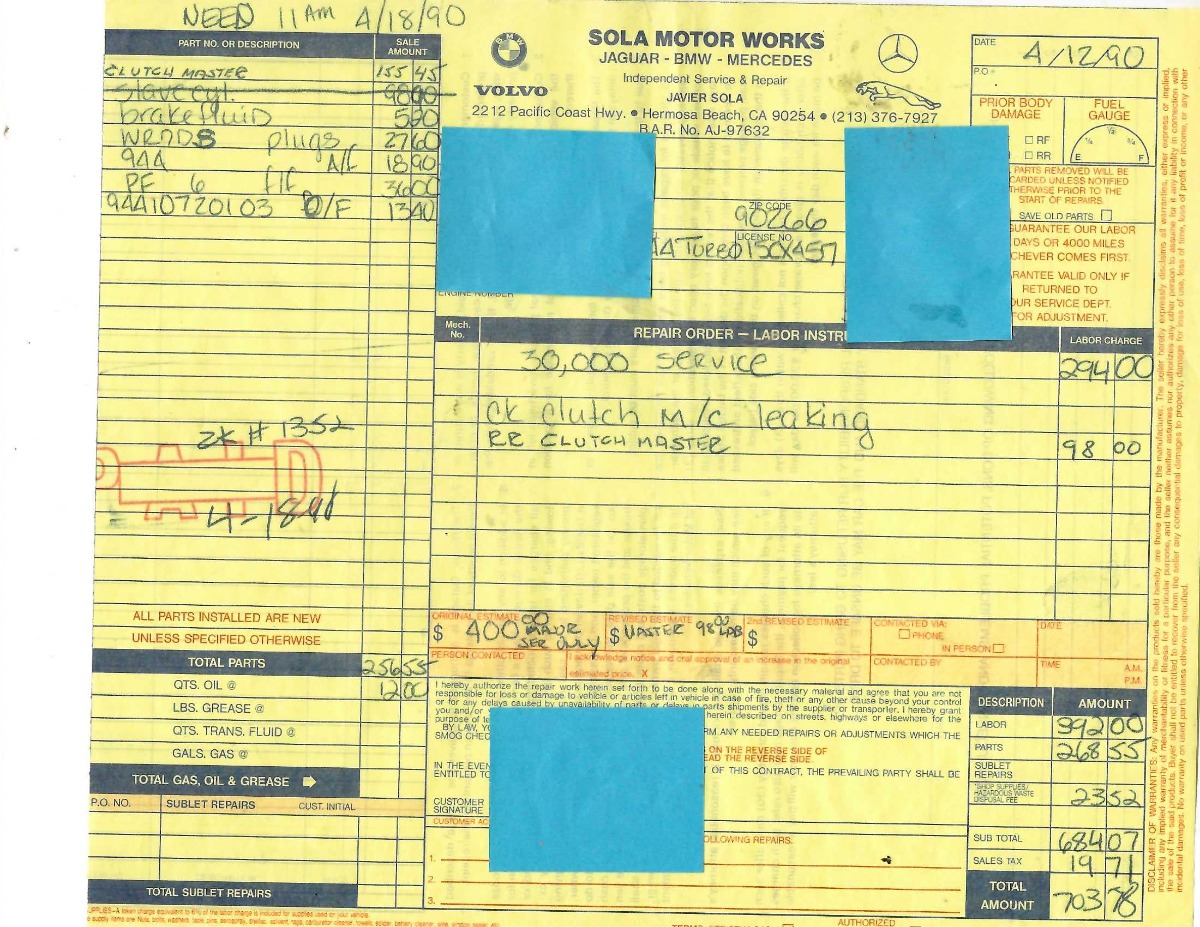 NEED 11AM 4/18/90
PART NO. OR DESCRIPTION SALE AMOUNT
CLUTCH MASTER 155 45
Slave cyl. 98 90
brake fluid 5 20
WR7DS plugs 27 60
944 A/F 18 90
PF 6 f/f 36 00
94410720103 O/F 13 40
ZK # 1352
ALL PARTS INSTALLED ARE NEW
UNLESS SPECIFIED OTHERWISE
TOTAL PARTS 256 55
QTS. OIL @ 12 00
LBS. GREASE @
QTS. TRANS. FLUID @
GALS. GAS @
TOTAL GAS, OIL & GREASE
P.O. NO. SUBLET REPAIRS CUST. INITIAL
TOTAL SUBLET REPAIRS
BMW
VOLVO
SOLA MOTOR WORKS
JAGUAR - BMW - MERCEDES
Independent Service & Repair
JAVIER SOLA
2212 Pacific Coast Hwy. • Hermosa Beach, CA 90254 • (213) 376-7927
B.A.R. No. AJ-97632
ZIP CODE
90266
LICENSE NO.
44 TURBO 1SCX457
ENGINE NUMBER
DATE 4/12/90
P.O #
PRIOR BODY DAMAGE
RF
RR
FUEL GAUGE
E ¼ ½ ¾ F
PARTS REMOVED WILL BE
CARDED UNLESS NOTIFIED
THERWISE PRIOR TO THE
START OF REPAIRS.
SAVE OLD PARTS
GUARANTEE OUR LABOR
DAYS OR 4000 MILES
CHEVER COMES FIRST.
RANTEE VALID ONLY IF
RETURNED TO
OUR SERVICE DEPT.
FOR ADJUSTMENT.
Mech. No. REPAIR ORDER — LABOR INSTRU LABOR CHARGE
30,000 Service 294 00
CK Clutch M/C leaking
RR CLUTCH MASTER 98 00
ORIGINAL ESTIMATE $ 400 00 MAJOR SER ONLY
REVISED ESTIMATE $ MASTER 98 00 LAB
2nd REVISED ESTIMATE $
CONTACTED VIA: PHONE IN PERSON
DATE
PERSON CONTACTED
I acknowledge notice and oral approval of an increase in the original
estimated price. X
CONTACTED BY
TIME A.M. P.M.
I hereby authorize the repair work herein set forth to be done along with the necessary material and agree that you are not
responsible for loss or damage to vehicle or articles left in vehicle in case of fire, theft or any other cause beyond your control
or for any delays caused by unavailability of parts or delays in parts shipments by the supplier or transporter. I hereby grant
you and/or herein described on streets, highways or elsewhere for the
purpose of te
BY LAW, YOU RM ANY NEEDED REPAIRS OR ADJUSTMENTS WHICH THE
SMOG CHEC
ON THE REVERSE SIDE OF
EAD THE REVERSE SIDE.
IN THE EVEN OF THIS CONTRACT, THE PREVAILING PARTY SHALL BE
ENTITLED TO
CUSTOMER SIGNATURE
CUSTOMER AC OLLOWING REPAIRS:
1.
2.
3.
DESCRIPTION AMOUNT
LABOR 392 00
PARTS 268 55
SUBLET REPAIRS
*SHOP SUPPLIES/ HAZARDOUS WASTE DISPOSAL FEE 23 52
SUB TOTAL 684 07
SALES TAX 19 71
TOTAL AMOUNT 703 78
DISCLAIMER OF WARRANTIES: Any warranties on the products sold hereby are those made by the manufacturer. The seller hereby expressly disclaims all warranties, either express or implied,
including any implied warranty of merchantability or fitness for a particular purpose, and the seller neither assumes nor authorizes any other person to assume for it any liability in connection with
the sale of the said products. Buyer shall not be entitled to recover from the seller any consequential damages to property, damages for loss of use, loss of time, loss of profit or income, or any other
incidental damages. No warranty on used products unless otherwise specified.
AUTHORIZED